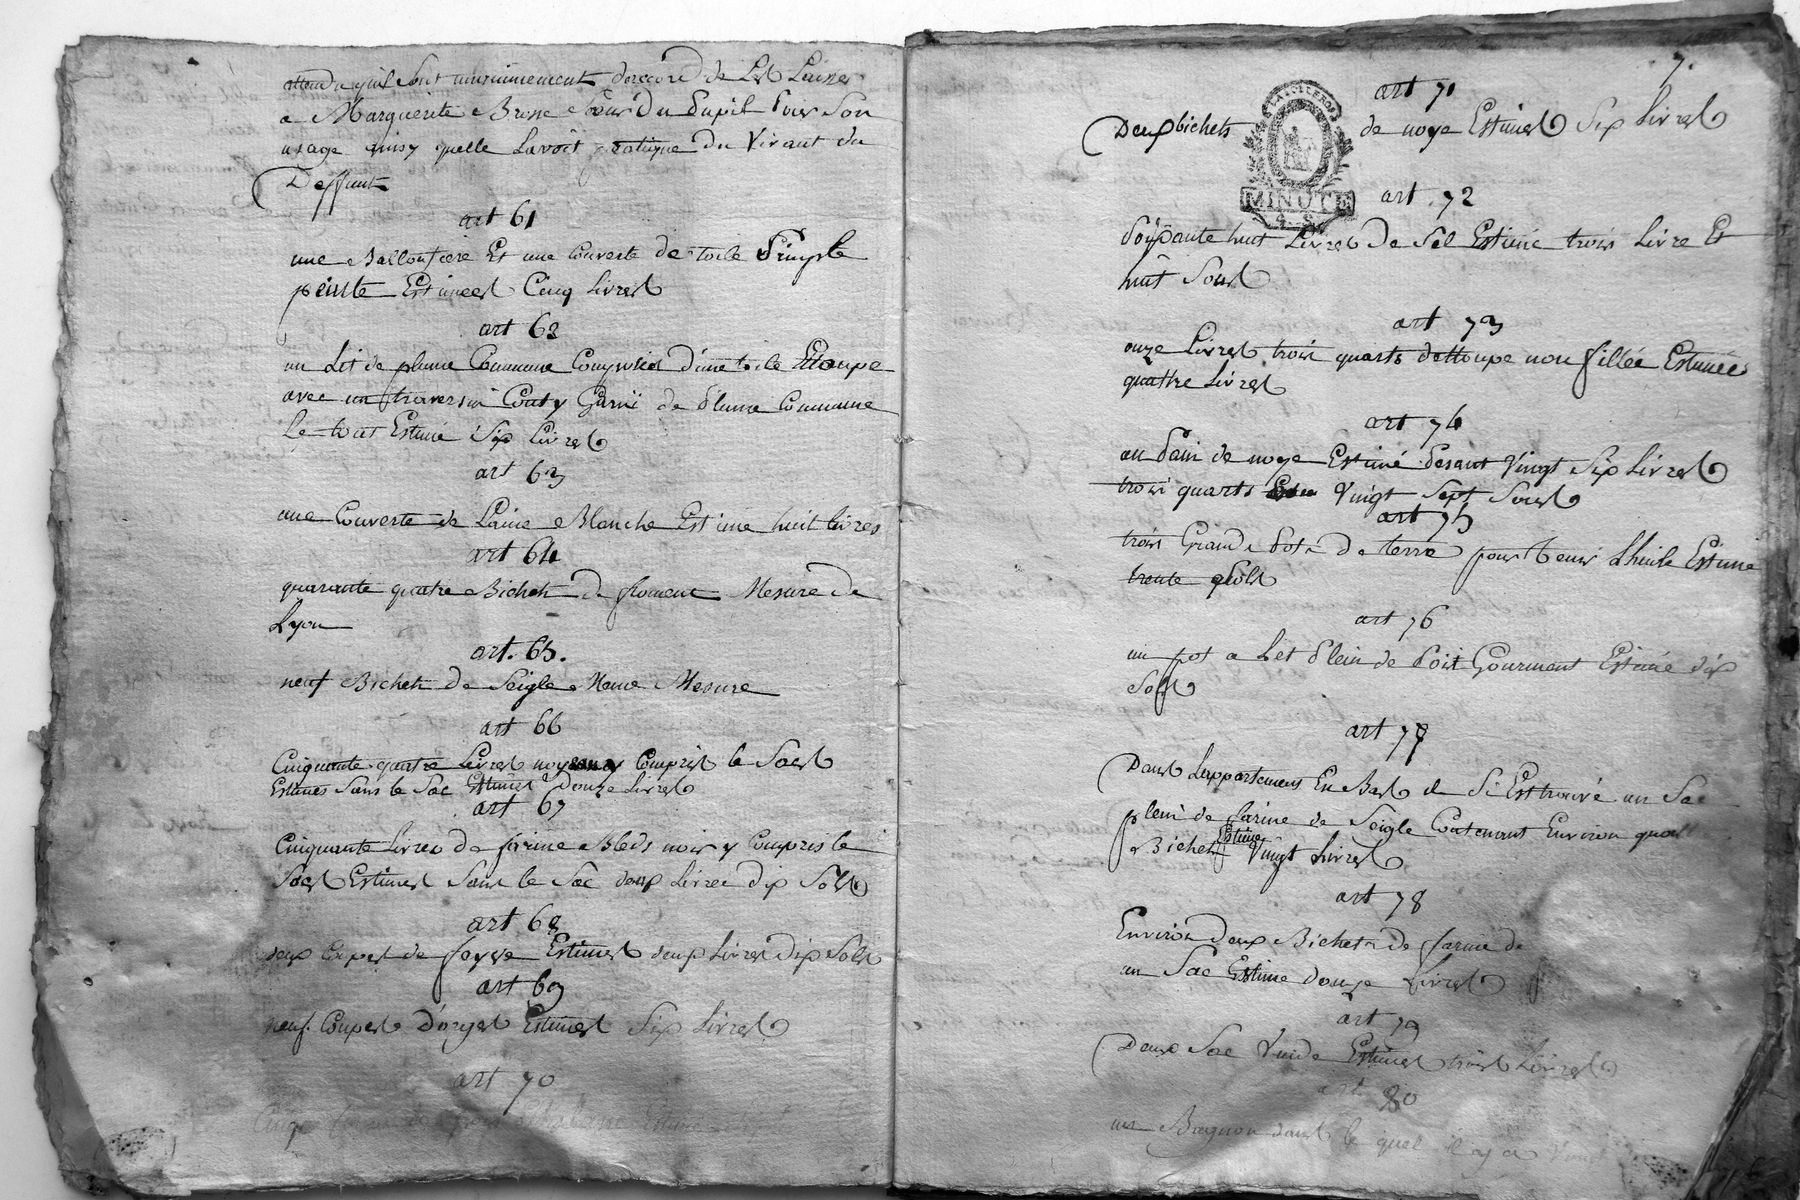 attendu quil sont unanimement daccord de Les Laisser
a Marguerite Brosse sœur du Pupil Pour Son
usage ainsy quelle Lavoit pratique du Vivant du
Deffunt
art 61
une Balloufiere Et une couverte de toile Simple
peinte Estimees Cinq Livres
art 62
un Lit de plume Commune Composée d'une toile Etoupe
avec un traversin Couty Garni de Plume Commune
Le tout Estimé Six Livres
art 63
une Couverte de Laine Blanche Estimé huit livres
art 64
quarante quatre Bichets de froment Mesure de
Lyon
art. 65.
neuf Bichets de Seigle Meme Mesure
art 66
Cinquante quatre Livres noyeaux y Compris le Sac
Estimes Sans le Sac Estimés Douze Livres
art 67
Cinquante Livres de farine Bleds noir y Compris le
Sac Estimes Sans le Sac deux Livres dix Sols
art 68
deux Coupes de fayve Estimes deux Livres Dix Sols
art 69
neuf Coupes D'orges Estimes Six Livres
art 70
Cinq
7.
art 71
Deux bichets de noye Estimes Six Livres
LA 10 LEROS
MINUTE
4. S
art 72
Soixante huit Livres de Sel Estimé trois Livre Et
huit Sous
art 73
onze Livres trois quarts dettoupe non fillée Estimées
quattre Livres
art 74
un Pain de noye Estimé Pesant Vingt Six Livres
trois quarts Vingt Sept Sous
art 75
trois Grande Pots de terre pour tenir Lhuile Estimé
trente Sols
art 76
un pot a Let Plein de Pois Gourment Estimé dix
Sols
art 77
Dans Lappartement En Bas il Si Est trouvé un Sac
plein de farine de Seigle Contenant Environ quatre
Bichets Estimé Vingt Livres
art 78
Environ deux Bichets de farine de
un Sac Estime douze Livres
art 79
Deux Sac Vuide Estimes trois Livres
art 80
un Bagnon dans le quel il y a